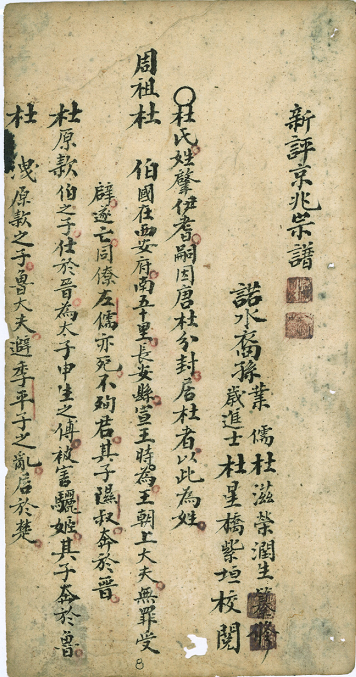 新評京兆宗譜
諾水裔孫業儒杜滋榮潤生
歲進士杜星橋紫垣校閱
杜氏姓肇伊耆嗣因唐杜分封居杜者以此為姓
周祖杜 伯國在西安府南五十里長安縣宣王時為王朝上大夫無罪受
辟遂亡同僚左儒亦死不殉君其子隰叔奔於晉
杜原款伯之子仕於晉為太子申生之傅被害驪姬其子奔於魯
杜洩原款之子魯大夫避季平子之亂居於楚
8